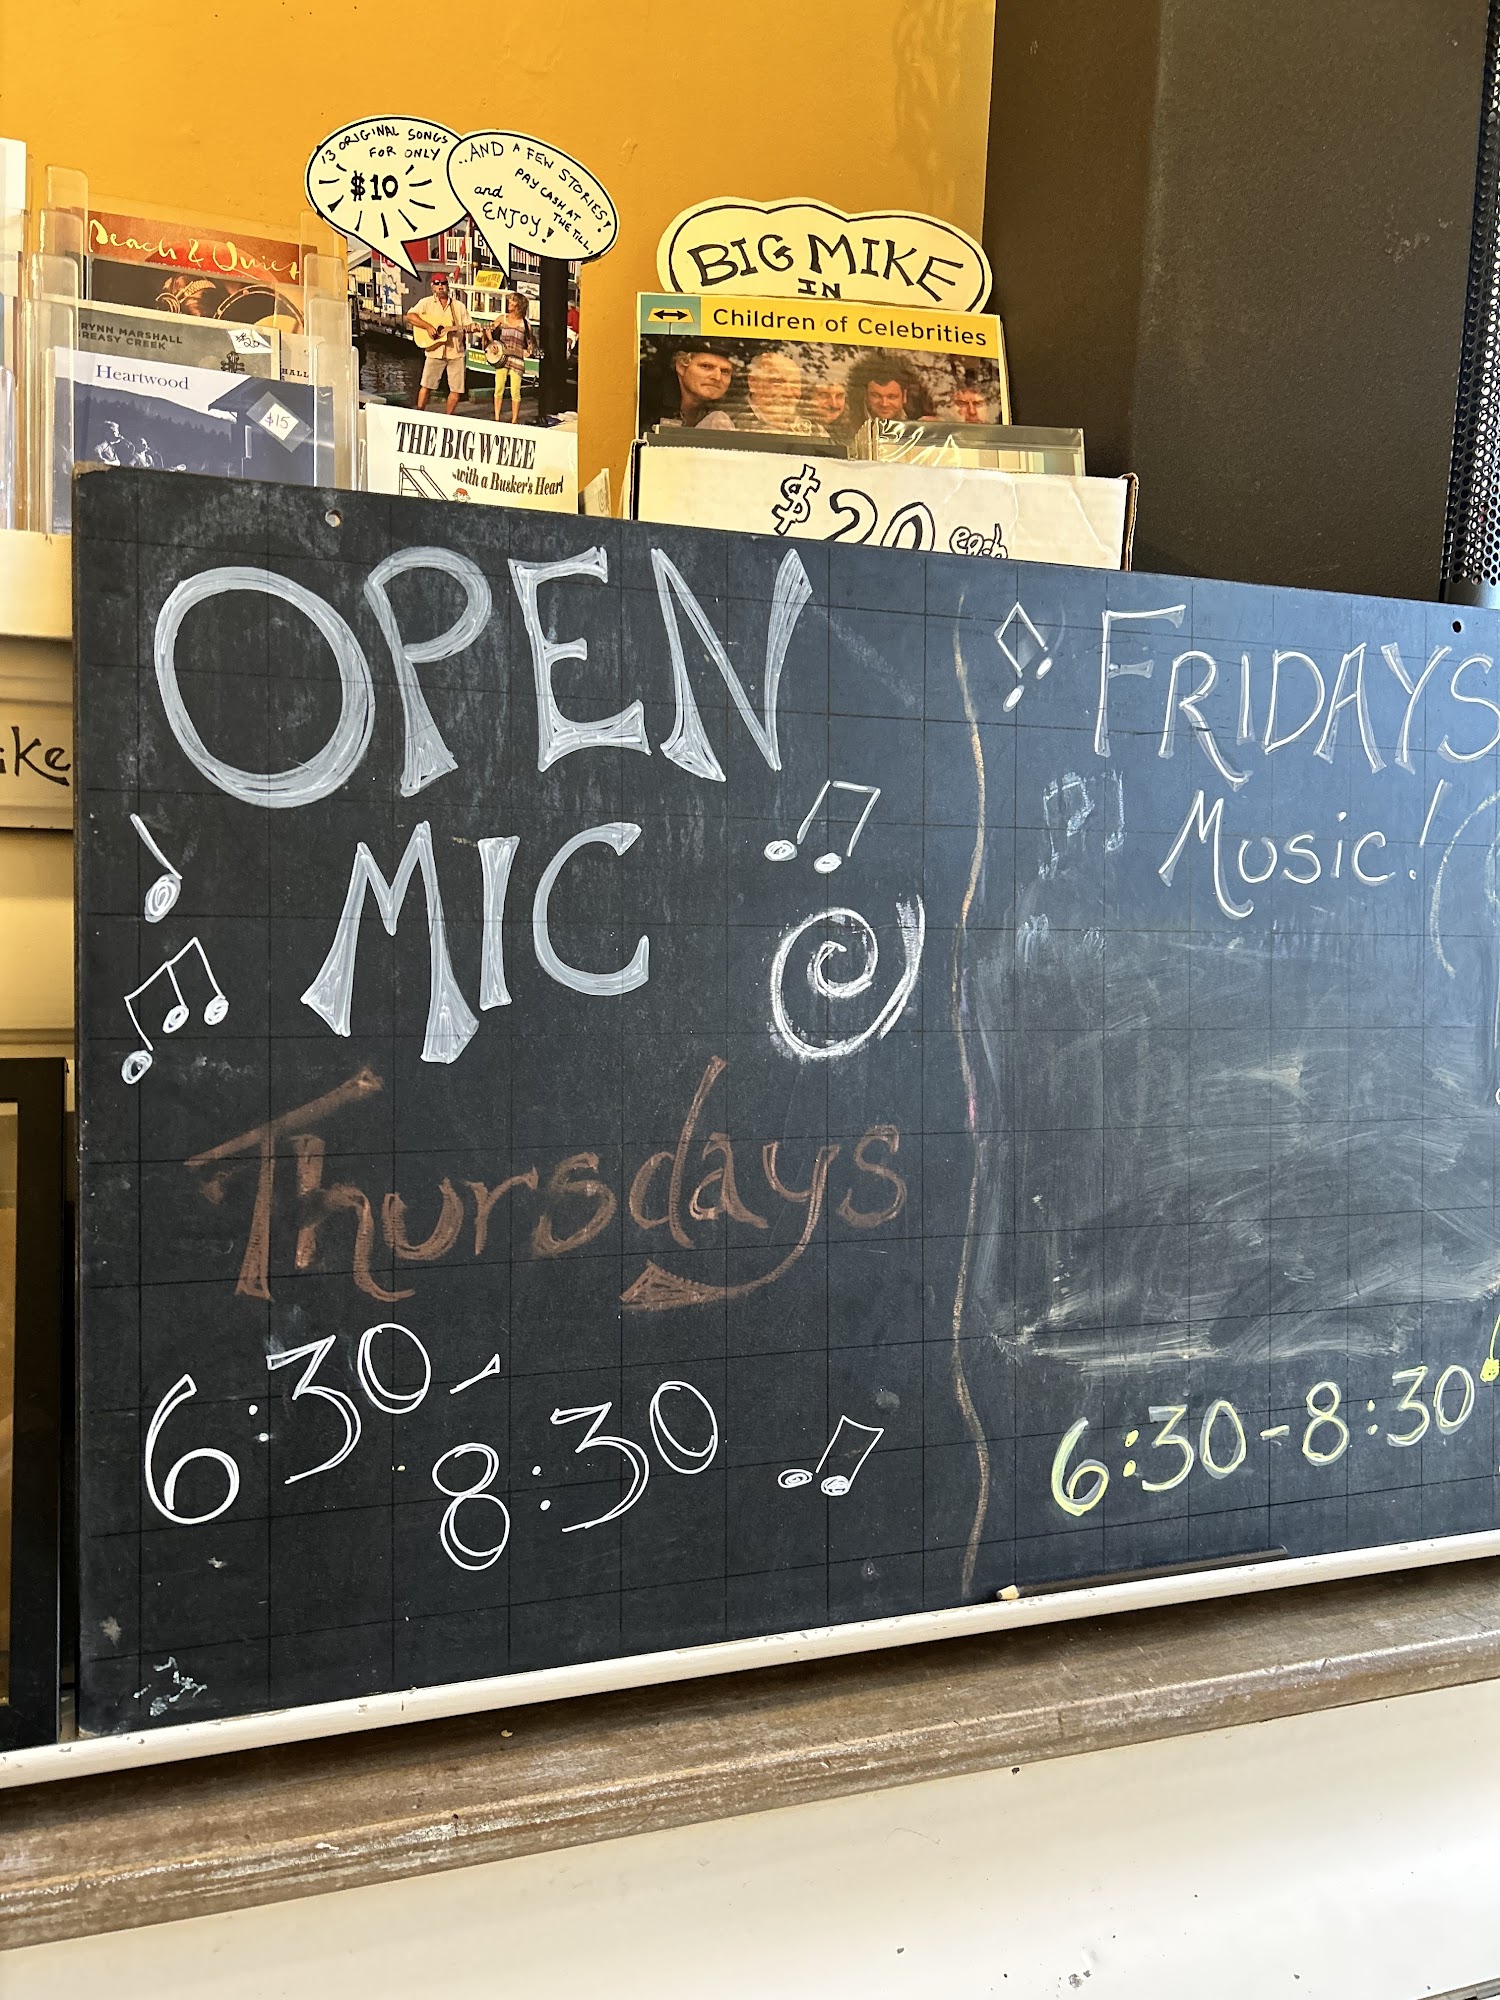 13 ORIGINAL SONGS
FOR ONLY
$10
..AND A FEW STORIES!
PAY CASH AT
THE TILL,
and
ENJOY!
BIG MIKE
IN
Children of Celebrities
Peach & Quiet
RYNN MARSHALL
REASY CREEK
$20
HALL
Heartwood
$15
THE BIG W'EEE
with a Busker's Heart
$20 each
ike
OPEN
MIC
Thursdays
6:30-
8:30
FRIDAYS
Music!
6:30-8:30